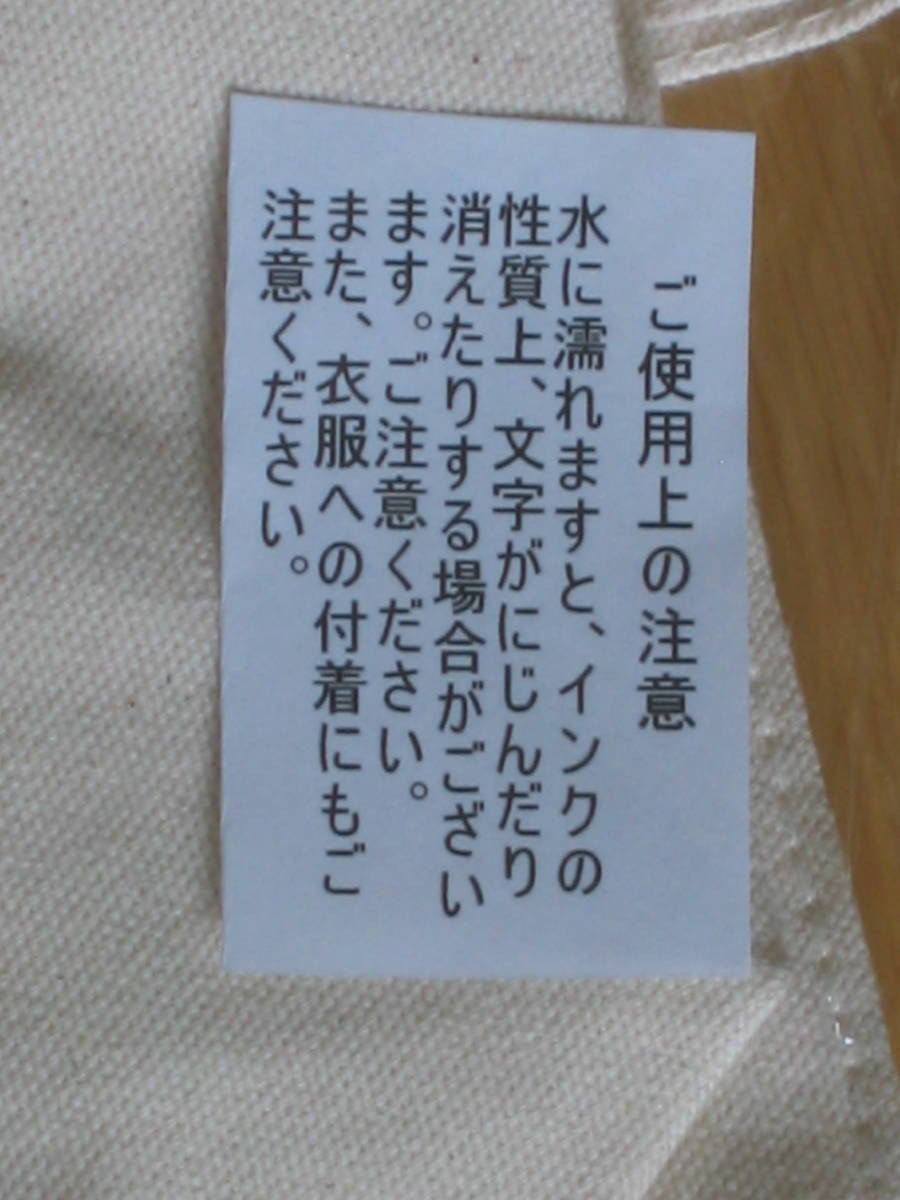 ご使用上の注意
水に濡れますと、インクの
性質上、文字がにじんだり
消えたりする場合がござい
ます。ご注意ください。
また、衣服への付着にもご
注意ください。